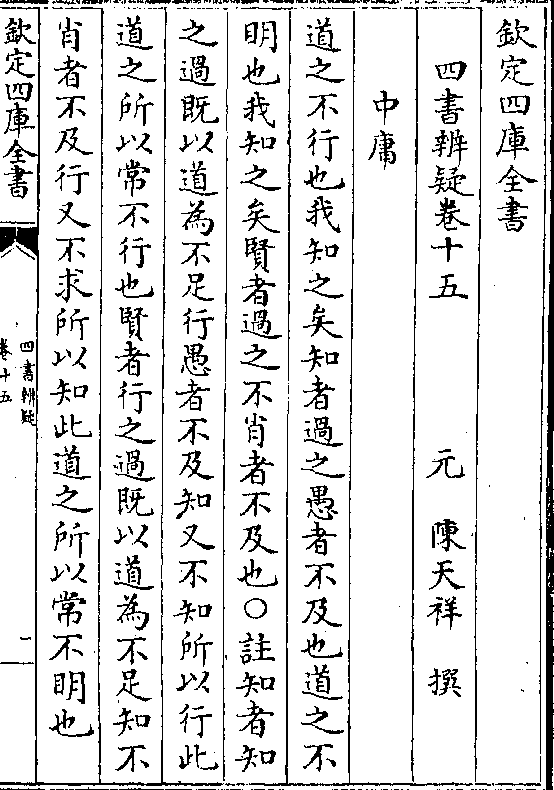 欽定四庫全書
四書辨疑卷十五　元　陳天祥　撰
中庸
道之不行也我知之矣知者過之愚者不及也道之不
明也我知之矣賢者過之不肖者不及也○註知者知
之過既以道為不足行愚者不及知又不知所以行此
道之所以常不行也賢者行之過既以道為不足知不
肖者不及行又不求所以知此道之所以常不明也
欽定四庫全書
四書辨疑
卷十五
一